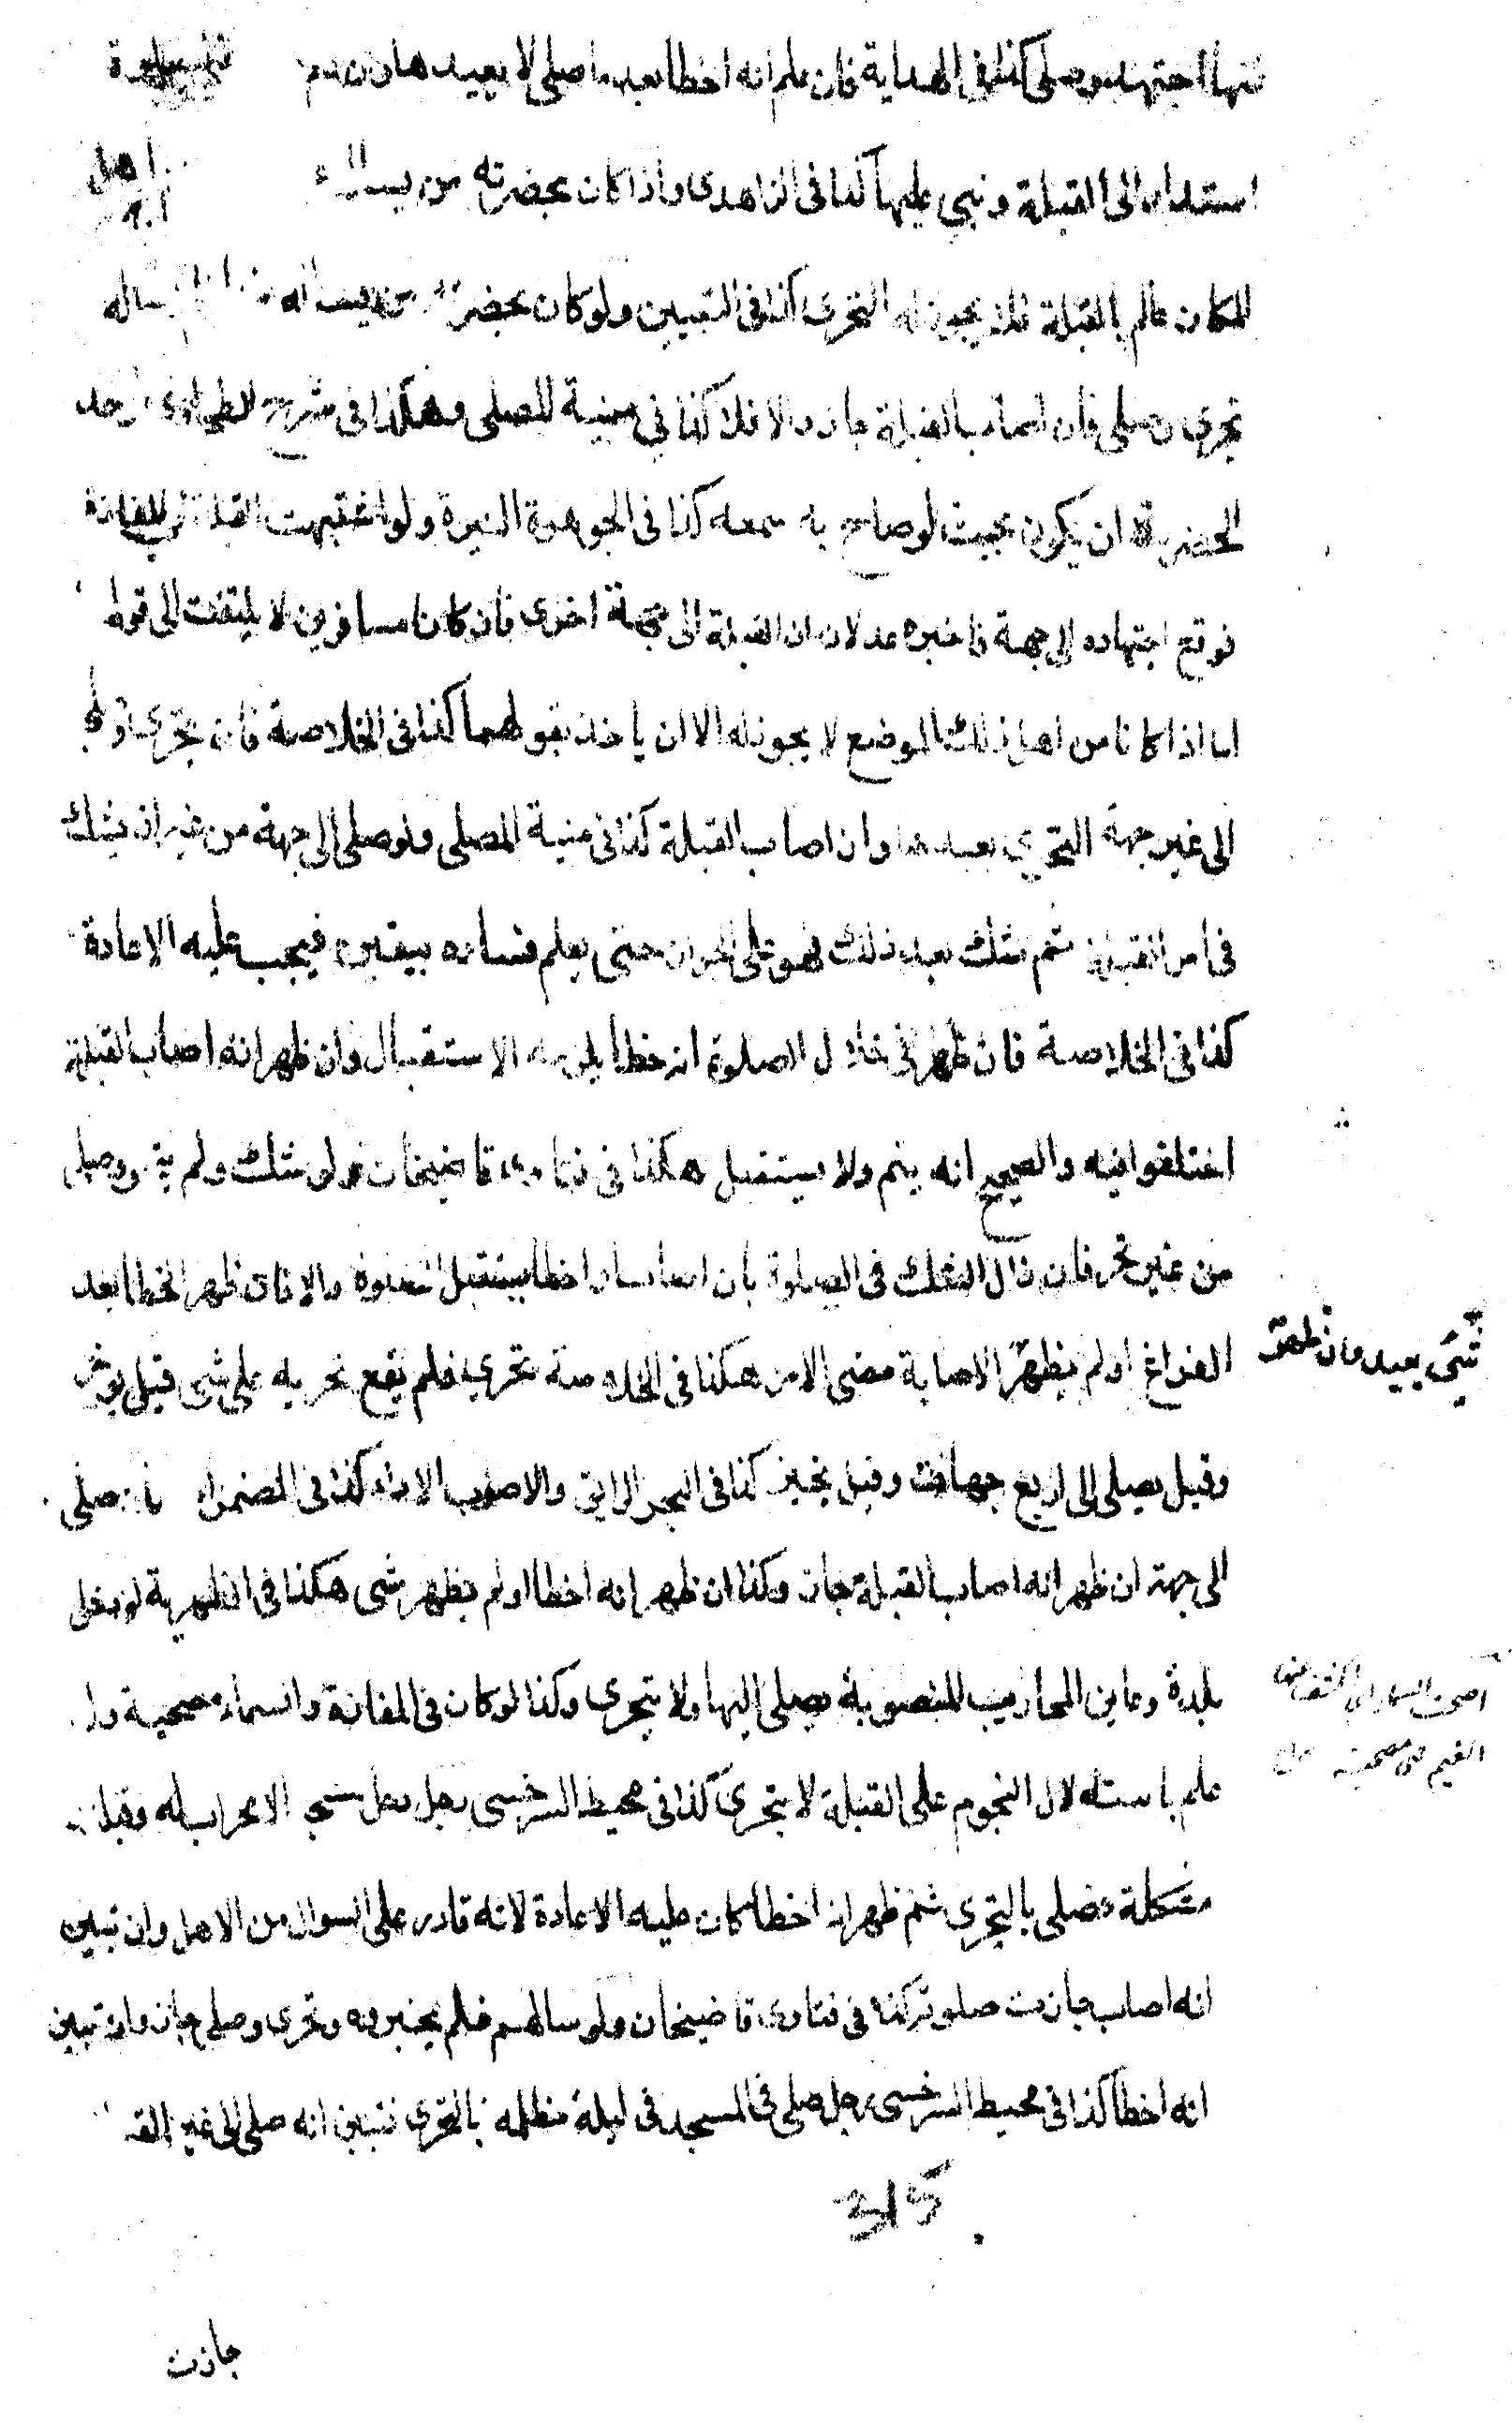 عنها اجتهد وصلى كذا فى الهداية فان علم انه اخطا بعد ما صلى لا يعيدها وان علم
استدار الى القبلة وبنى عليها كذا فى الزاهدى واذا كان بحضرته من يساله
المكان عالم بالقبلة فلا يجوز له التحرى كذا فى التبيين ولو كان بحضرته من يساله يساله
تحرى وصلى فان اصاب القبلة جاز والا فلا كذا فى منية المصلى وهكذا فى شرح الطحاوى وحد
الحضرة ان يكون بحيث لو صاح به سمعه كذا فى الجوهرة النيرة ولو اشتبهت القبلة فى المفازة
فوقع اجتهاده الى جهة فاخبره عدلان ان القبلة الى جهة اخرى فان كانا مسافرين لا يلتفت الى قولهما
اما اذا كانا من اهل ذلك الموضع لا يجوز له الا ان ياخذ بقولهما كذا فى الخلاصة فان تحرى وصلى
الى غير جهة التحرى يعيدها وان اصاب القبلة كذا فى منية المصلى ولو صلى الى جهة من غير ان يشك
فى امر القبلة ثم شك بعد ذلك فهو على الجواز حتى يعلم فساده بيقين فيجب عليه الاعادة
كذا فى الخلاصة فان ظهر فى خلال الصلوة انه خطا يلزمه الاستقبال وان ظهر انه اصاب القبلة
اختلفوا فيه والصحيح انه يتم ولا يستقبل هكذا فى فتاوى قاضيخان ولو شك ولم يتحر وصلى
من غير تحر فان زال الشك فى الصلوة بان اصاب او اخطا يستقبل الصلوة والا فان ظهر الخطا بعد
الفراغ او لم يظهر الاصابة مضى الامر هكذا فى الخلاصة تحرى فلم يقع تحريه على شى قيل يوخر
شى يعيد وان ظهر
وقيل يصلى الى اربع جهات وقيل يخير كذا فى البحر الرائق والاصوب الاداء كذا فى المضمرات فان صلى
الى جهة ان ظهر انه اصاب القبلة جاز وكذا ان ظهر انه اخطا او لم يظهر شى هكذا فى الظهيرية لو دخل
بلدة وعاين المحاريب المنصوبة يصلى اليها ولا يتحرى وكذا لو كان فى المفازة والسماء مصحية وله
علم باستدلال النجوم على القبلة لا يتحرى كذا فى محيط السرخسى رجل دخل مسجد الا محراب له وقبلته
مشكلة فصلى بالتحرى ثم ظهر انه اخطا كان عليه الاعادة لانه قادر على السوال من الاهل وان تبين
انه اصاب جازت صلوته كذا فى فتاوى قاضيخان ولو سالهم فلم يخبروه وتحرى وصلى جاز وان تبين
انه اخطا كذا فى محيط السرخسى رجل صلى فى المسجد فى ليلة مظلمة بالتحرى فتبين انه صلى الى غير القـ
315
جازت